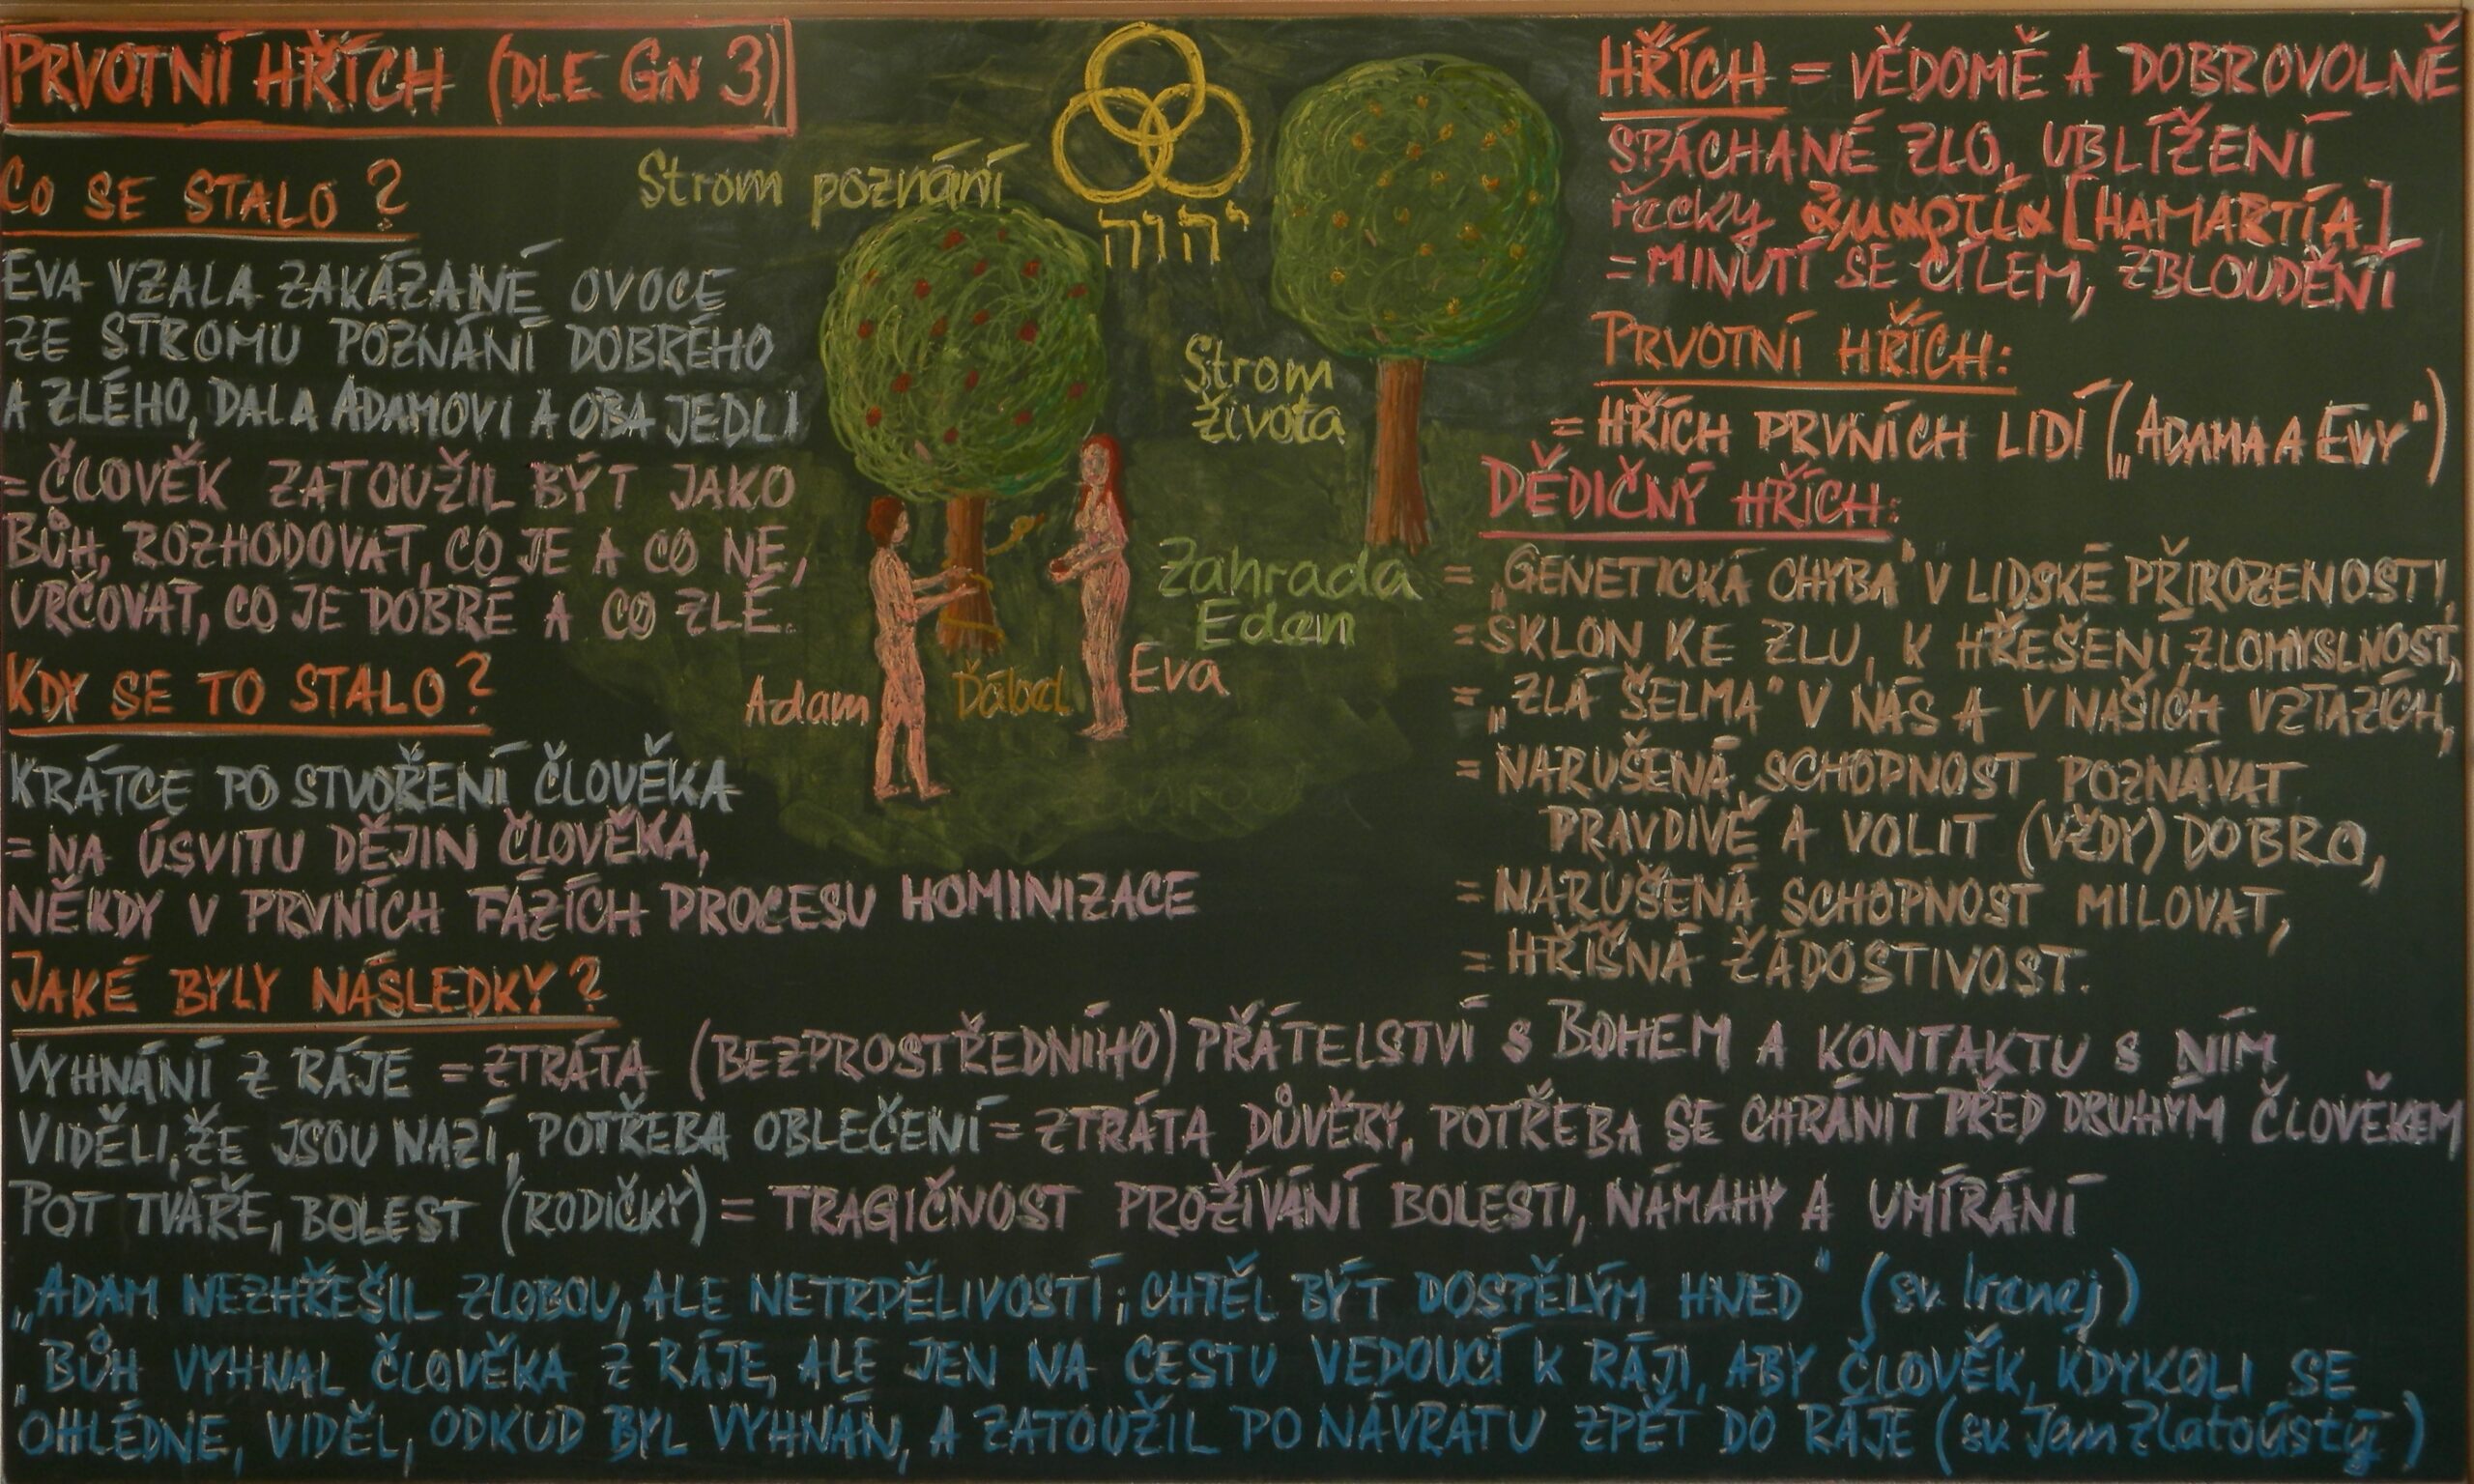 PRVOTNÍ HŘÍCH (DLE GN 3)
CO SE STALO?
EVA VZALA ZAKÁZANÉ OVOCE
ZE STROMU POZNÁNÍ DOBRÉHO
A ZLÉHO, DALA ADAMOVI A OBA JEDLI
= ČLOVĚK ZATOUŽIL BÝT JAKO
BŮH, ROZHODOVAT, CO JE A CO NE,
URČOVAT, CO JE DOBRÉ A CO ZLÉ.
KDY SE TO STALO?
KRÁTCE PO STVOŘENÍ ČLOVĚKA
= NA ÚSVITU DĚJIN ČLOVĚKA,
NĚKDY V PRVNÍCH FÁZÍCH PROCESU HOMINIZACE
Strom poznání
יהוה
Strom
života
Zahrada
Eden
Adam
Ďábel
Eva
HŘÍCH = VĚDOMĚ A DOBROVOLNĚ
SPÁCHANÉ ZLO, UBLÍŽENÍ
řecky ἁμαρτία [HAMARTÍA]
= MINUTÍ SE CÍLEM, ZBLOUDĚNÍ
PRVOTNÍ HŘÍCH:
= HŘÍCH PRVNÍCH LIDÍ („ADAMA A EVY“)
DĚDIČNÝ HŘÍCH:
= „GENETICKÁ CHYBA“ V LIDSKÉ PŘIROZENOSTI,
= SKLON KE ZLU, K HŘEŠENÍ, ZLOMYSLNOST,
= „ZLÁ ŠELMA“ V NÁS A V NAŠICH VZTAZÍCH,
= NARUŠENÁ SCHOPNOST POZNÁVAT
PRAVDIVĚ A VOLIT (VŽDY) DOBRO,
= NARUŠENÁ SCHOPNOST MILOVAT,
= HŘÍŠNÁ ŽÁDOSTIVOST.
JAKÉ BYLY NÁSLEDKY?
VYHNÁNÍ Z RÁJE = ZTRÁTA (BEZPROSTŘEDNÍHO) PŘÁTELSTVÍ S BOHEM A KONTAKTU S NÍM
VIDĚLI, ŽE JSOU NAZÍ, POTŘEBA OBLEČENÍ = ZTRÁTA DŮVĚRY, POTŘEBA SE CHRÁNIT PŘED DRUHÝM ČLOVĚKEM
POT TVÁŘE, BOLEST (RODIČKY) = TRAGIČNOST PROŽÍVÁNÍ BOLESTI, NÁMAHY A UMÍRÁNÍ
„ADAM NEZHŘEŠIL ZLOBOU, ALE NETRPĚLIVOSTÍ; CHTĚL BÝT DOSPĚLÝM HNED“ (sv. Irenej)
„BŮH VYHNAL ČLOVĚKA Z RÁJE, ALE JEN NA CESTU VEDOUCÍ K RÁJI, ABY ČLOVĚK, KDYKOLI SE
OHLÉDNE, VIDĚL, ODKUD BYL VYHNÁN, A ZATOUŽIL PO NÁVRATU ZPĚT DO RÁJE (sv. Jan Zlatoústý)